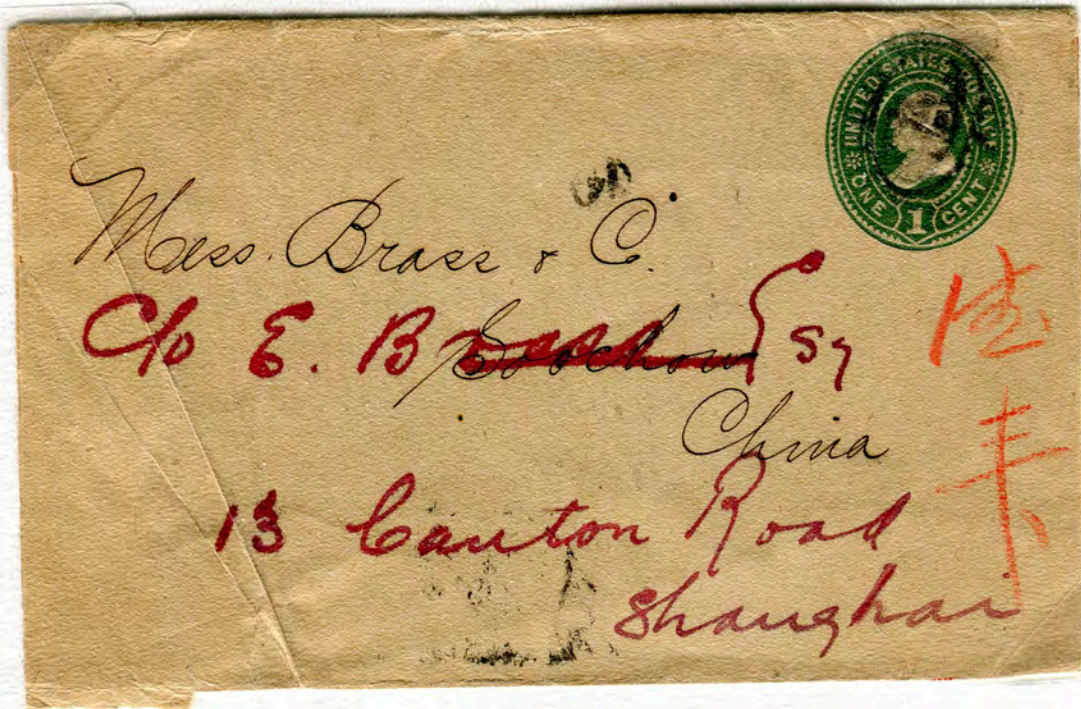 UNITED STATES POSTAGE
ONE 1 CENT
Mess. Brass & C.
C/o E. B Esq
Soochow
China
13 Canton Road
Shanghai